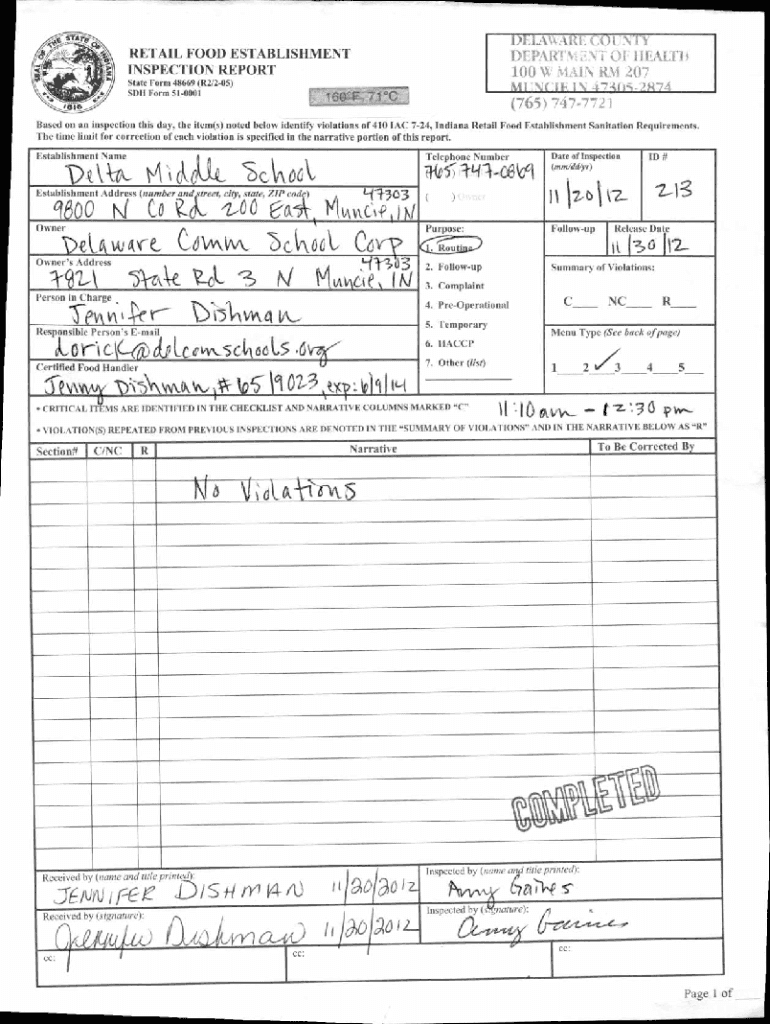 SEAL OF THE STATE OF INDIANA
1816
RETAIL FOOD ESTABLISHMENT
INSPECTION REPORT
State Form 48669 (R2/2-05)
SDH Form 51-0001
160°F 71°C
DELAWARE COUNTY
DEPARTMENT OF HEALTH
100 W MAIN RM 207
MUNCIE IN 47305-2874
(765) 747-7721
Based on an inspection this day, the item(s) noted below identify violations of 410 IAC 7-24, Indiana Retail Food Establishment Sanitation Requirements.
The time limit for correction of each violation is specified in the narrative portion of this report.
Establishment Name
Delta Middle School
Telephone Number
765, 747-0869
Date of Inspection
(mm/dd/yr)
11/20/12
ID #
213
Establishment Address (number and street, city, state, ZIP code)
47303
9800 N Co Rd 200 East, Muncie, IN
( ) Owner
Owner
Delaware Comm School Corp
Purpose:
1. Routine
2. Follow-up
3. Complaint
4. Pre-Operational
5. Temporary
6. HACCP
7. Other (list)
Follow-up
Release Date
11/30/12
Owner's Address
47303
7821 State Rd 3 N Muncie, IN
Summary of Violations:
C____ NC____ R____
Person in Charge
Jennifer Dishman
Responsible Person's E-mail
dorick@delcomschools.org
Menu Type (See back of page)
1____ 2 ✓ 3____ 4____ 5____
Certified Food Handler
Jenny Dishman, #6519023, exp: 6/9/14
• CRITICAL ITEMS ARE IDENTIFIED IN THE CHECKLIST AND NARRATIVE COLUMNS MARKED "C"
11:10am - 12:30 pm
• VIOLATION(S) REPEATED FROM PREVIOUS INSPECTIONS ARE DENOTED IN THE "SUMMARY OF VIOLATIONS" AND IN THE NARRATIVE BELOW AS "R"
Section# C/NC R Narrative To Be Corrected By
No Violations
COMPLETED
Received by (name and title printed):
JENNIFER DISHMAN 11/20/2012
Inspected by (name and title printed):
Amy Gaines
Received by (signature):
Jennifer Dishman 11/20/2012
Inspected by (signature):
Amy Gaines
cc:
cc:
cc:
Page 1 of ____